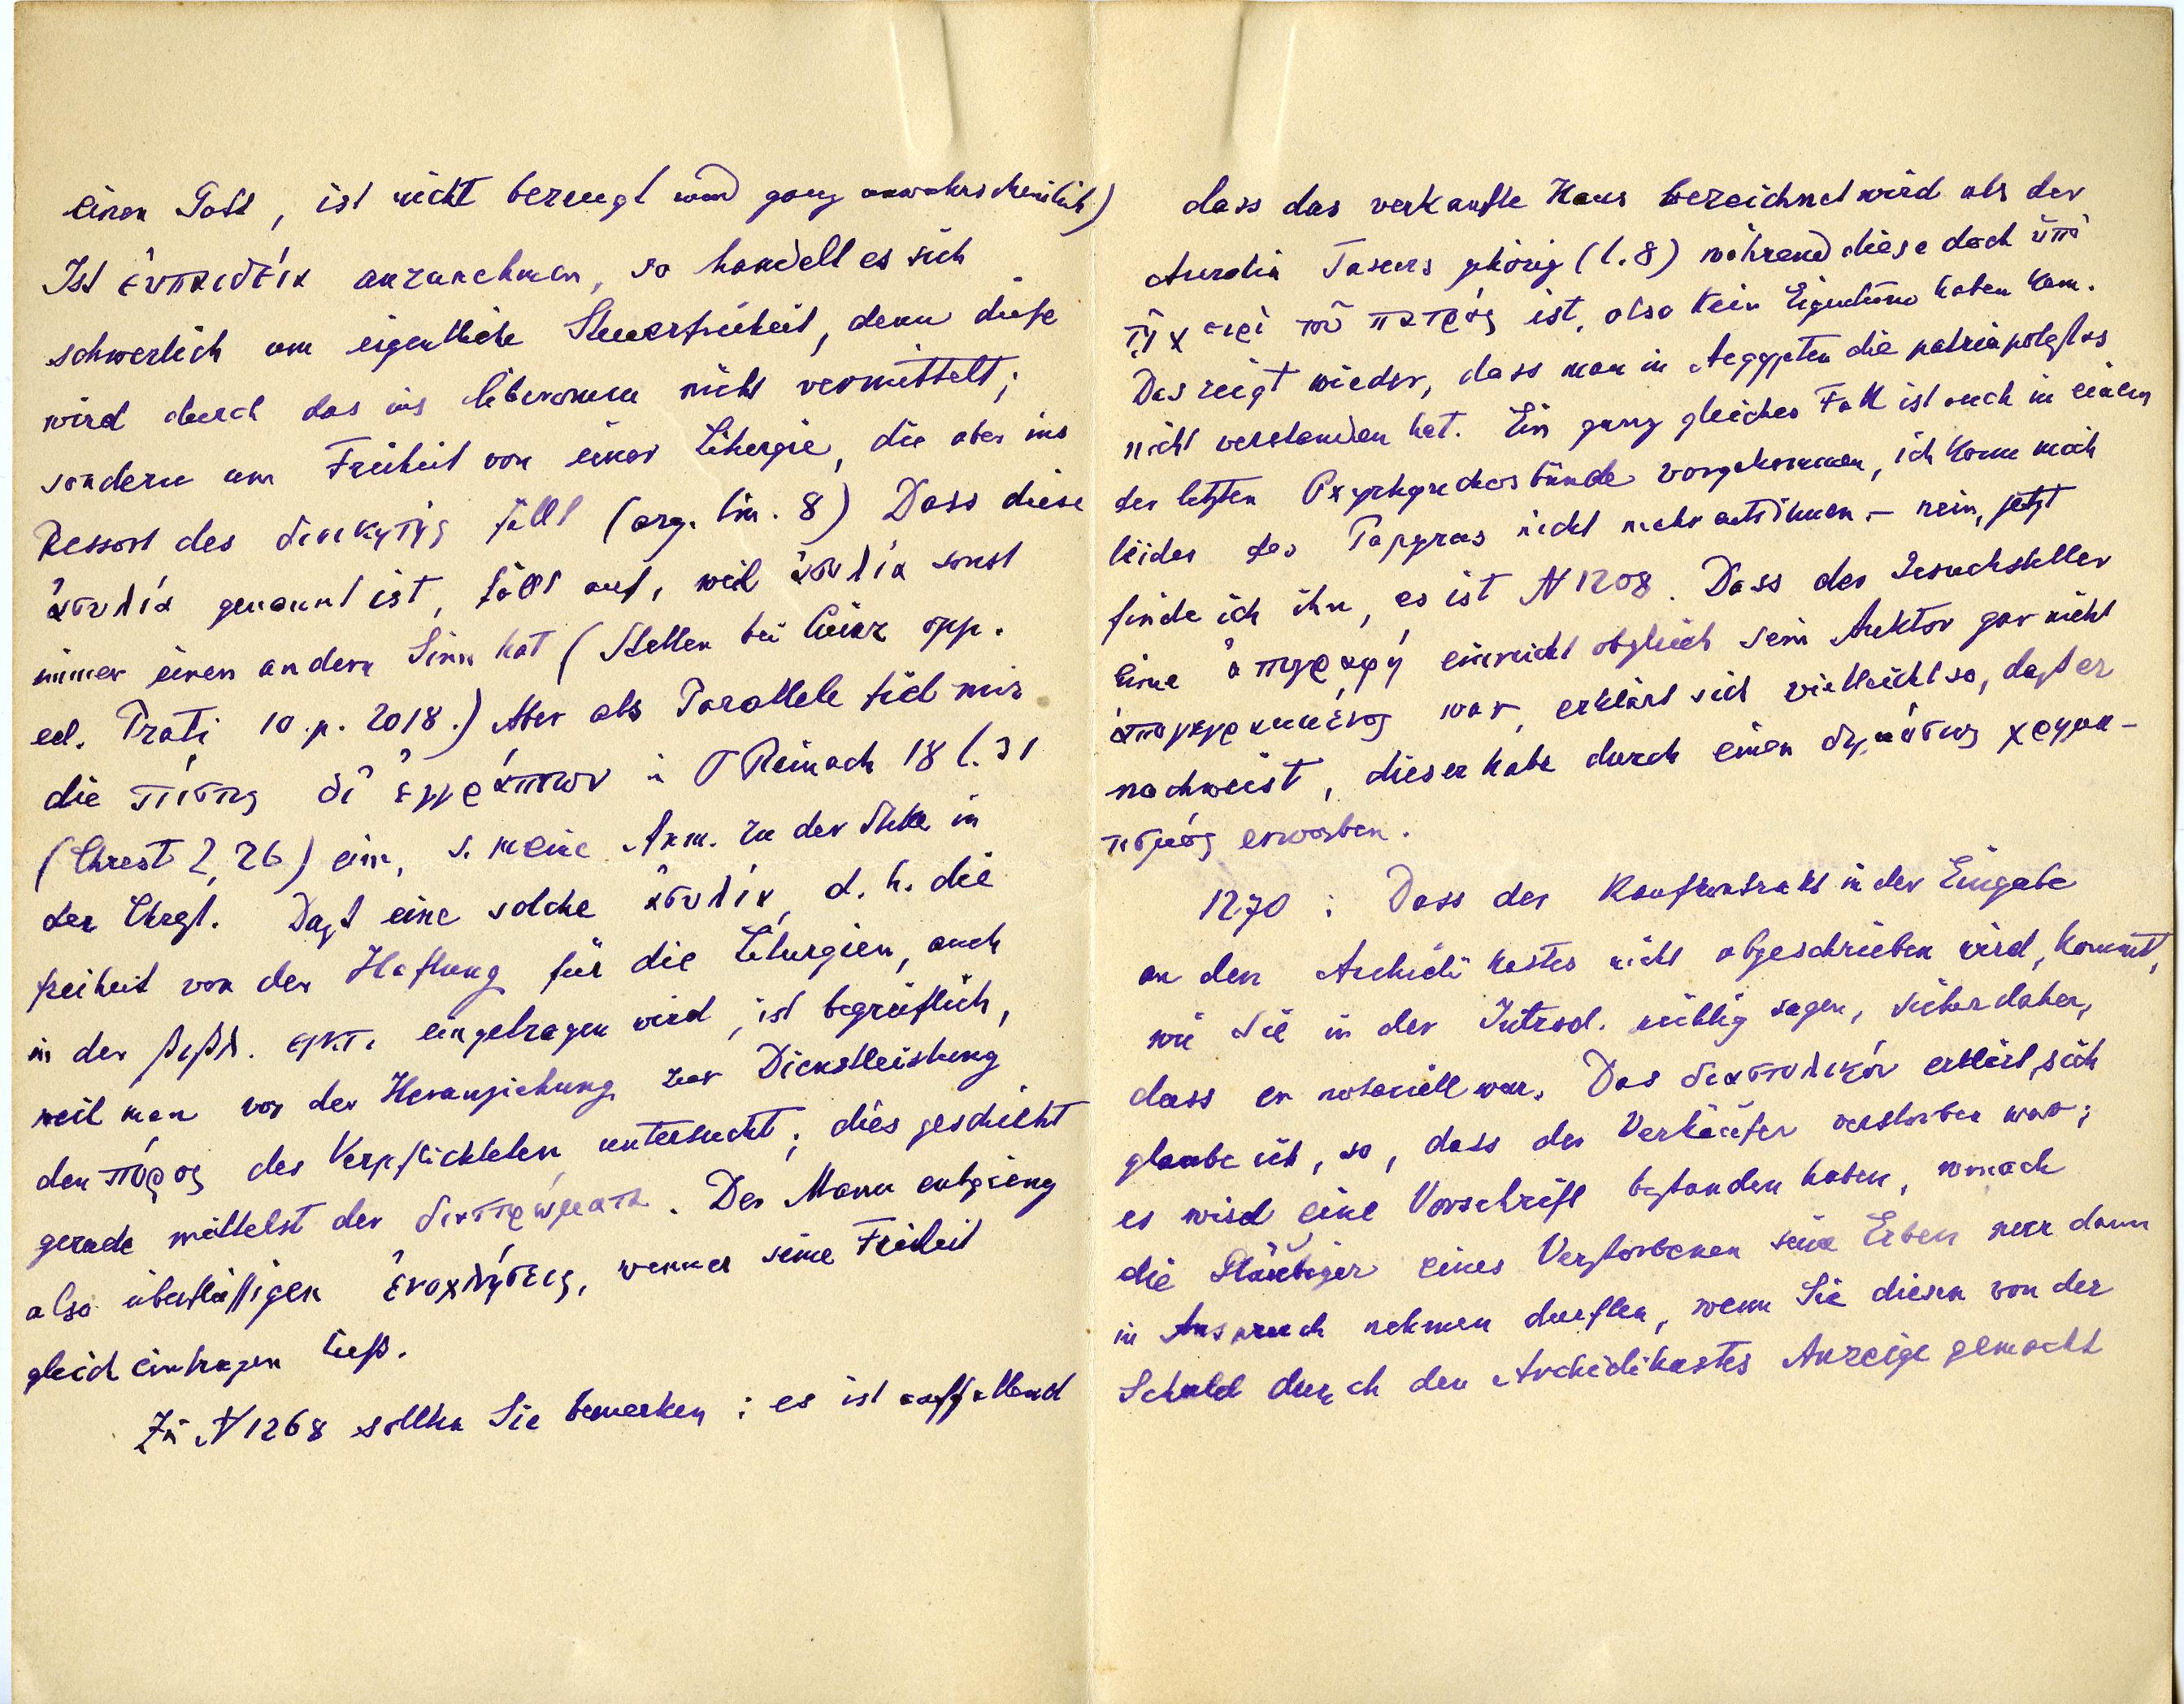 einen Fall, ist nicht bezeugt und ganz unwahrscheinlich)
Ist ἐνπαιδεία anzunehmen, so handelt es sich
schwerlich um eigentliche Steuerfreiheit, denn diese
wird durch das ius liberorum nicht vermittelt;
sondern um Freiheit von einer Liturgie, die aber ins
Ressort des διοικητής fällt (arg. lin. 8) Dass diese
ἀσυλία genannt ist, fällt auf, weil ἀσυλία sonst
immer einen andern Sinn hat (Stellen bei
ed. Prati 10 p. 2018.) Aber als Parallele fiel mir
die πίστις δι' ἐγγράπτων in P Reinach 18 l. 31
(Chrest 2, 26) ein, s. meine Anm. zu der Stelle in
der Chrest. Dass eine solche ἀσυλία, d. h. die
freiheit von der Haftung für die Liturgien, auch
in der βιβλ. ἐγκτ. eingetragen wird, ist begreiflich,
weil man vor der Heranziehung zur Dienstleistung
den πόρος des Verpflichteten untersucht; dies geschieht
gerade mittelst der διαστρώματα. Der Mann entgieng
also überflüssigen ἐνοχλήσεις, wenn er seine Freiheit
gleich eintragen ließ.
Zu N 1268 sollten Sie bemerken: es ist auffallend
dass das verkaufte Haus bezeichnet wird als der
Aurelia Taseus gehörig (l. 8) während diese doch ὑπὸ
τῇ χειρὶ τοῦ πατρός ist, also kein Eigentum haben kann.
Das zeigt wieder, dass man in Aegypten die patria potestas
nicht verstanden hat. Ein ganz gleicher Fall ist auch in einem
der letzten Oxyrhynchosbände vorgekommen, ich kann mich
leider des Papyrus nicht mehr entsinnen – nein, jetzt
finde ich ihn, es ist N 1208. Dass der Gesuchsteller
eine ἀπογραφή einreicht obgleich sein Auktor gar nicht
ἀπογεγραμμένος war, erklärt sich vielleicht so, dass er
nachweist, dieser habe durch einen δημόσιος χρημα-
τισμός erworben.
1270: Dass der Kaufkontrakt in der Eingabe
an den Archidikastes nicht abgeschrieben wird, kommt,
wie Sie in der Introd. richtig sagen, sicher daher,
dass er notariell war. Das διαστολικόν erklärt sich
glaube ich, so, dass der Verkäufer verstorben war;
es wird eine Vorschrift bestanden haben, wonach
die Gläubiger eines Verstorbenen seine Erben nur dann
in Anspruch nehmen durften, wenn Sie diesen von der
Schuld durch den Archidikastes Anzeige gemacht